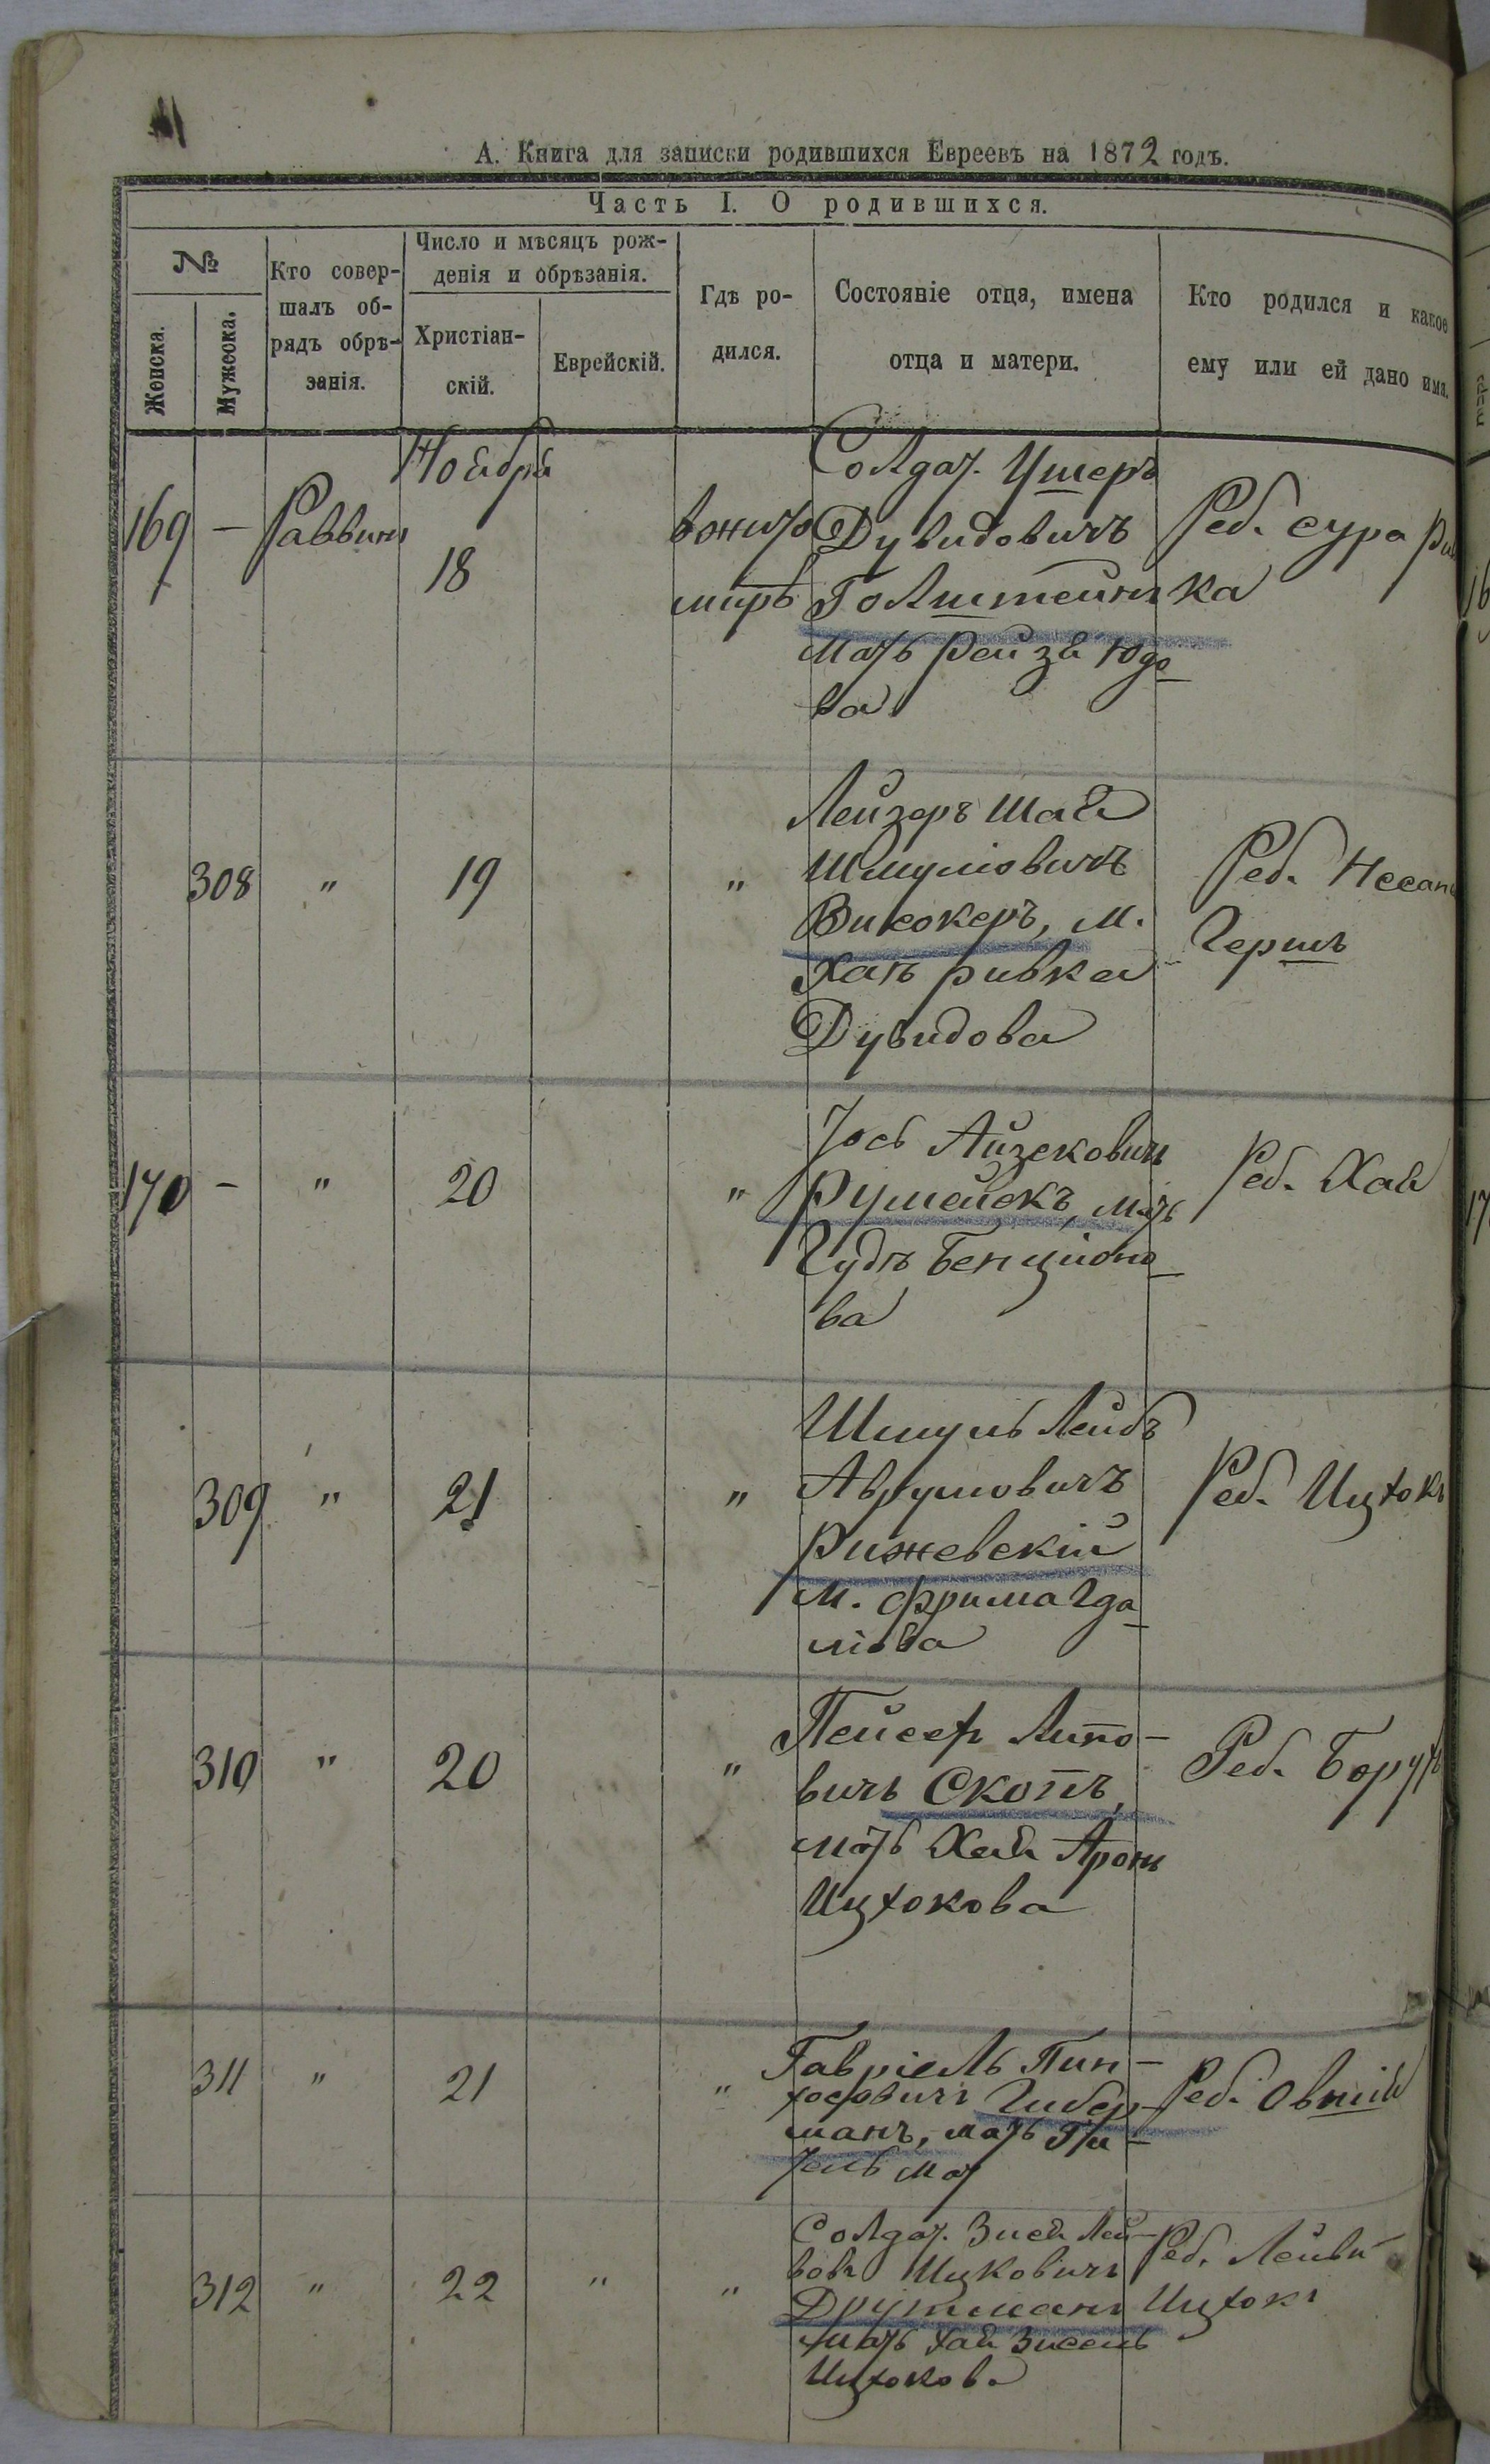 А. Книга для записки родившихся Евреевъ на 1872 годъ.
Часть I. О родившихся.
№
Женска.
Мужеска.
Кто совер-
шалъ об-
рядъ обрѣ-
занія.
Число и мѣсяцъ рож-
денія и обрѣзанія.
Христіан-
скій.
Еврейскій.
Гдѣ ро-
дился.
Состояніе отца, имена
отца и матери.
Кто родился и какое
ему или ей дано имя.
Ноября
169 — Раввинъ
18
въ жито
миръ
Солдат. Ушеръ
Дувидовичъ
Голштейнъ
мать Рейзя Юдо
ва
Реб. Сура Рив
ка
308 " 19 "
Лейзеръ Шая
Шмуліовичъ
Високеръ, м.
Хап ривка
Дувидова
Реб.
Герш
170 — " 20 "
Іось Айзековичъ
мать
Бенціоно
ва
Реб. Хая
309 " 21 "
Шмуль Лейбъ
Аврумовичъ
Рижевскій
м. Фрима Гда
ліова
Реб. Ицхокъ
310 " 20 "
Пейсех Липо-
вичъ Скотъ,
мать Хая Аронъ
Ицхокова
Реб. Борухъ
311 " 21 "
Гавріель Пин-
хосовичъ Губер-
манъ, мать
Реб. Овшій
312 " 22 " "
Солдат. Зися Лей-
Ицковичъ
мать Хая
Ицхоков.
Реб.
Ицхокъ